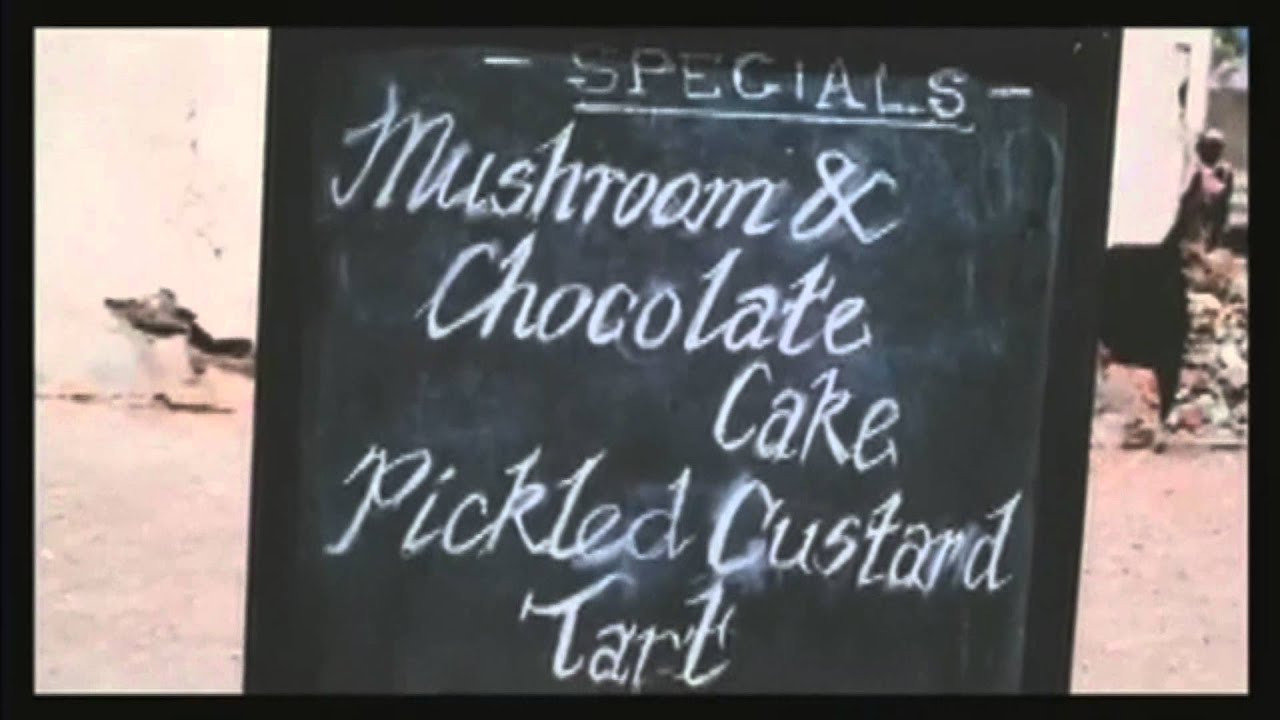 - SPECIALS -
Mushroom &
Chocolate
Cake
Pickled Custard
Tart